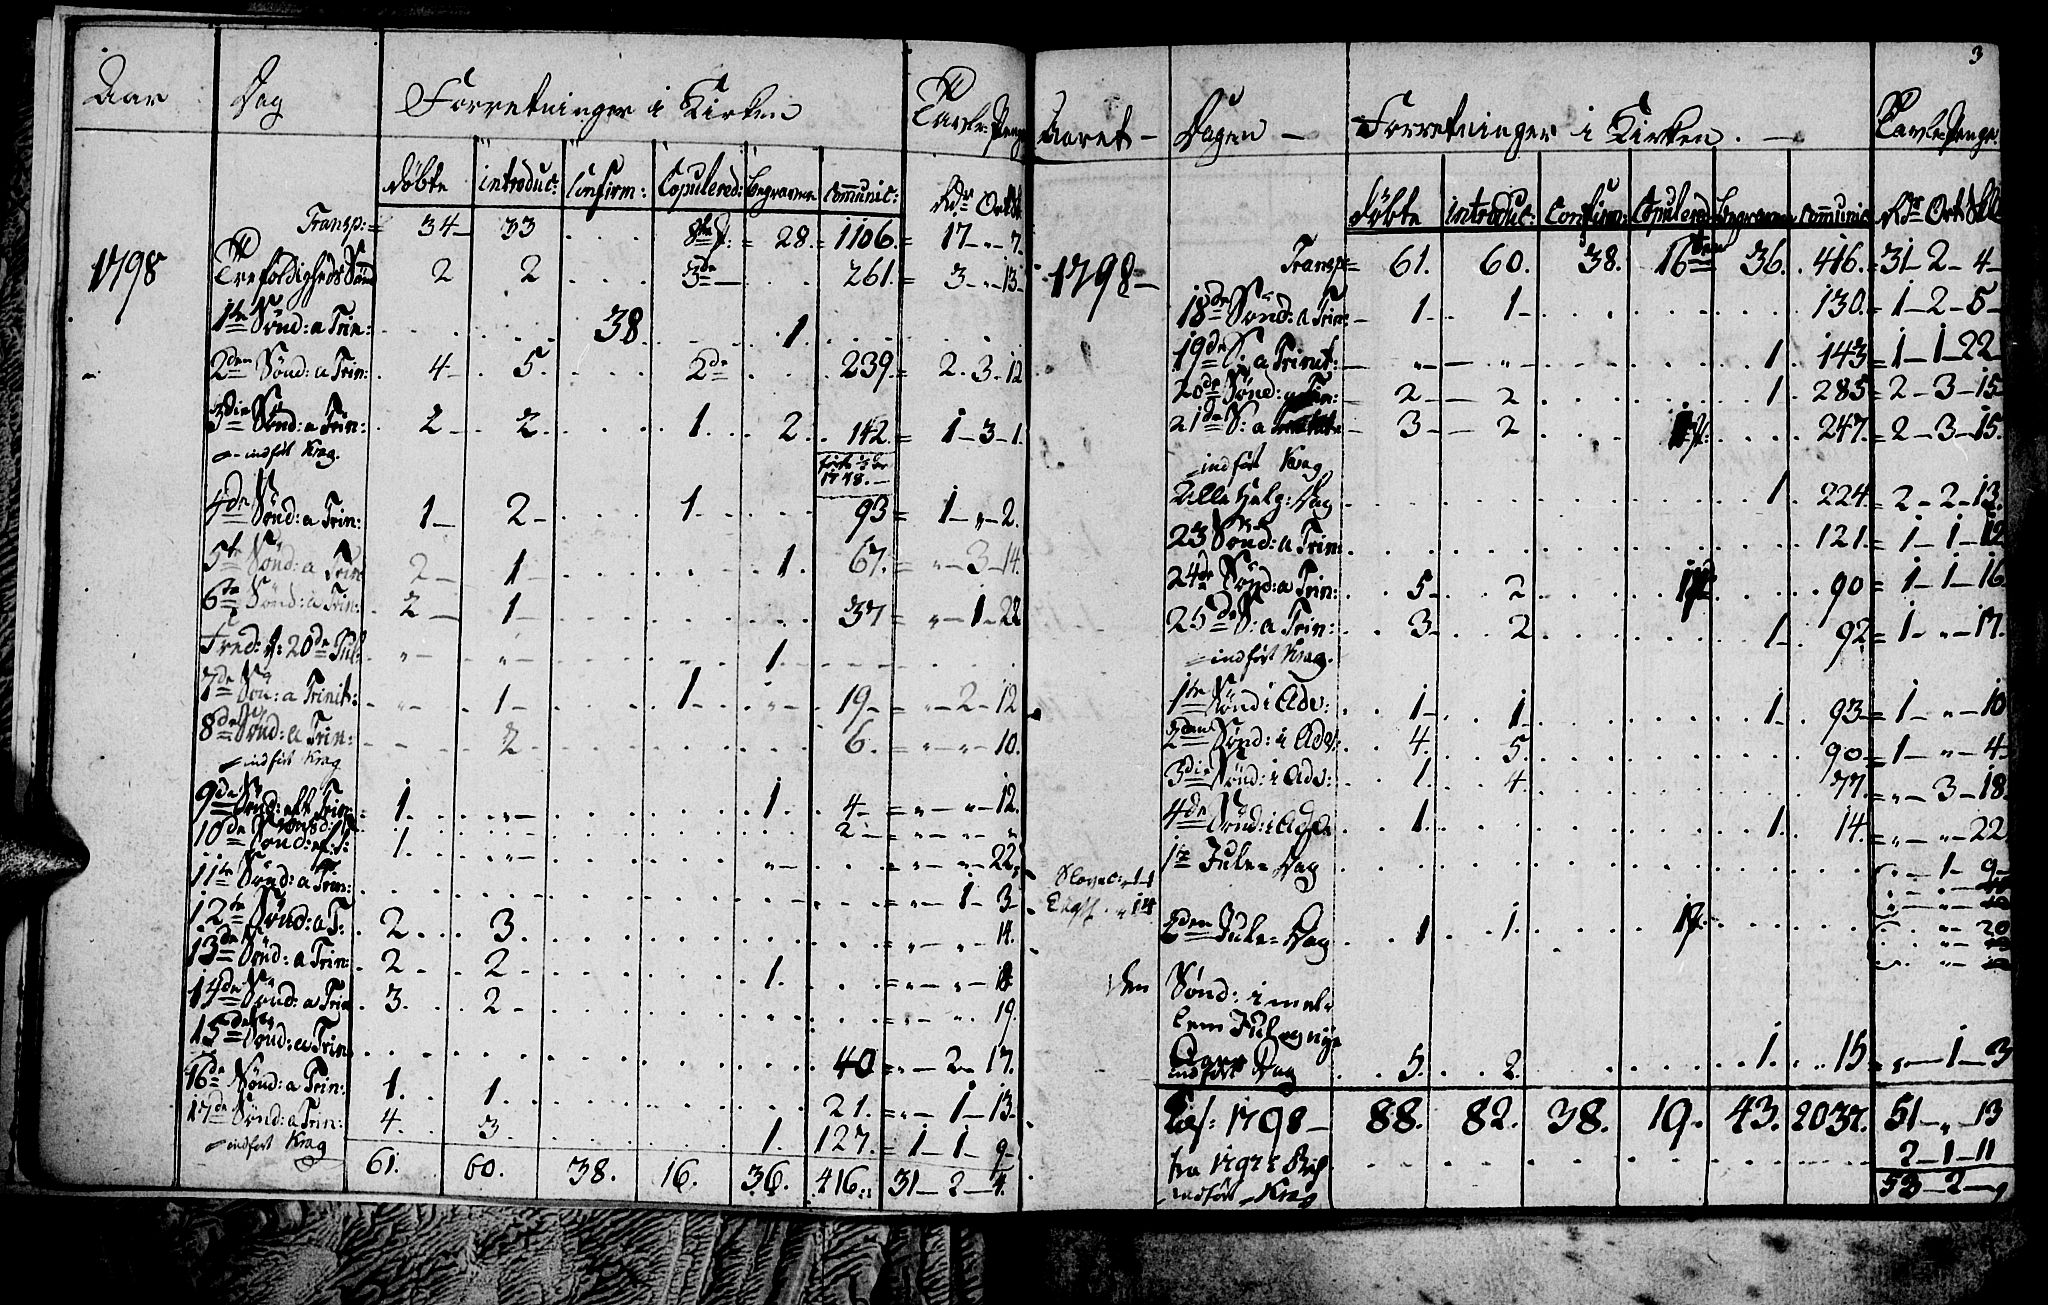 Aar Dag Forretninger i Kirken Tavle-Peng
døbte introduc: Confirm: Copulered: begravne Communic: Rdr Ort
Transp:= 34 33 . . . = 28. = 1106. = 17 - " - 7.
1798 Trefoldigheds Sønd 2 2 . . . 3de . . . 261. = 3 - " - 13
1te Sønd: a Trin: . . . . 38. . . . 1. . . .
2den Sønd: a Trin: 4 - 5. . . . 2de . . . 239. = 2. 3. 12
3die Sønd: a Trin: 2 - 2. . . . 1. 2. 142. = 1 - 3 - 1.
indført Krag.
1798.
4de Sønd: a Trin: 1 - 2 - . . . 1. . . . 93 = 1 - " - 2.
5te Sønd: a Trin 2 - 1 - . . . . 1. 67. = " - 3 - 14.
6te Sønd: a Trin: 2 - 1 . . . . . 37 = " - 1 - 22
Fred: d: 20de Jul: " - " - . . . 1. . . .
7de Søn: a Trinit: " - 1 - . . 1. " - 19 - = " - 2 - 12
8de Sønd: a Trin: . . 2 . . . . 6. = " - " - 10.
indført Krag
9de Sønd: eft Trin: 1. . " - . . . 1. 4 - = " - " - 12.
10de Sønd: 1. . " - . . . . 2 - = " - " - "
11te Sønd: a Trin: . . . . " - " - 22
12te Sønd: a T: 2. . 3. . . . . " - 1 - 3
13de Sønd: a Trin: 2 . . 2 . . . . " - " - 14.
14de Sønd: a Trin 3. . 2 . . . 1. . = " - " - 18
15de Sønd: a Trin . . . . = " - " 19.
16de Sønd: a Trin: 1. . 1. . . . 40 = " - 2 - 17.
17de Sønd: a Trin: 4. . 3. . . . 21. = " - 1 - 13
indført Krag 1. 127. = 1 - 1 - 9
61. 60. 38. 16. 36. 416. 31 - 2 - 4.
3
Aaret - Dagen - Forretninger i Kirken. - Tavle-Penge
døbte introduc: Confirm: Copulered begravne Communic Rdr Ort Skl
1798 - Transp = 61. 60. 38. 16 36. 416. = 31 - 2 - 4 -
18de Sønd: a Trin: - 1 . . 1 - . . . . 130. = 1 - 2 - 5 -
19de S: a Trinit: - " - " . . . 1. 143 = 1 - 1 - 22 -
20de Sønd: - 2 - - 2 . . . . 1. 285 = 2 - 3 - 15
21de S: a - 3 - - 2 . . . . . 247. = 2 - 3 - 15.
indført Krag
Alle Helg: Dag . . . . . 1. 224. = 2 - 2 - 13.
23 Sønd: a Trin: . . . . . . 121. = 1 - 1 - 12
24de Sønd: a Trin: . . 5 - . 2 . . . . 90 = 1 - 1 - 16.
25de S: a Trin: . . 3 - . 2 . . . . 1. 92. = 1 - " - 17.
indført Krag.
1te Sønd i Adv: . . 1 - . . 1. . . . 1. . 93 = 1 - " - 10
2den Sønd: i Adv: . . 4. . . 5. . . . . 90 = 1 - " - 4.
3die Sønd: i Adv: . . 1. . . 4. . . . . 77. = " - 3 - 18.
4de Sønd: i Adv . . 1. . . . . . 1. . 14. = " - " - 22
1te Jule-Dag . . . . . . " - 1 - 9
2den Jule-Dag . . 1 . . 1. . . . . . " - 20
Den Sønd: imel
lem Jul og nye
Aars
indført Dag . . 5. . . 2. . . . 1. . 15 = " - 1 - 3
1798 - 88. 82. 38. 19. 43. 2037. 51 - " - 13
fra 1797 . . . . 2 - 1 - 11
indført - Krag 53 - 2 - "